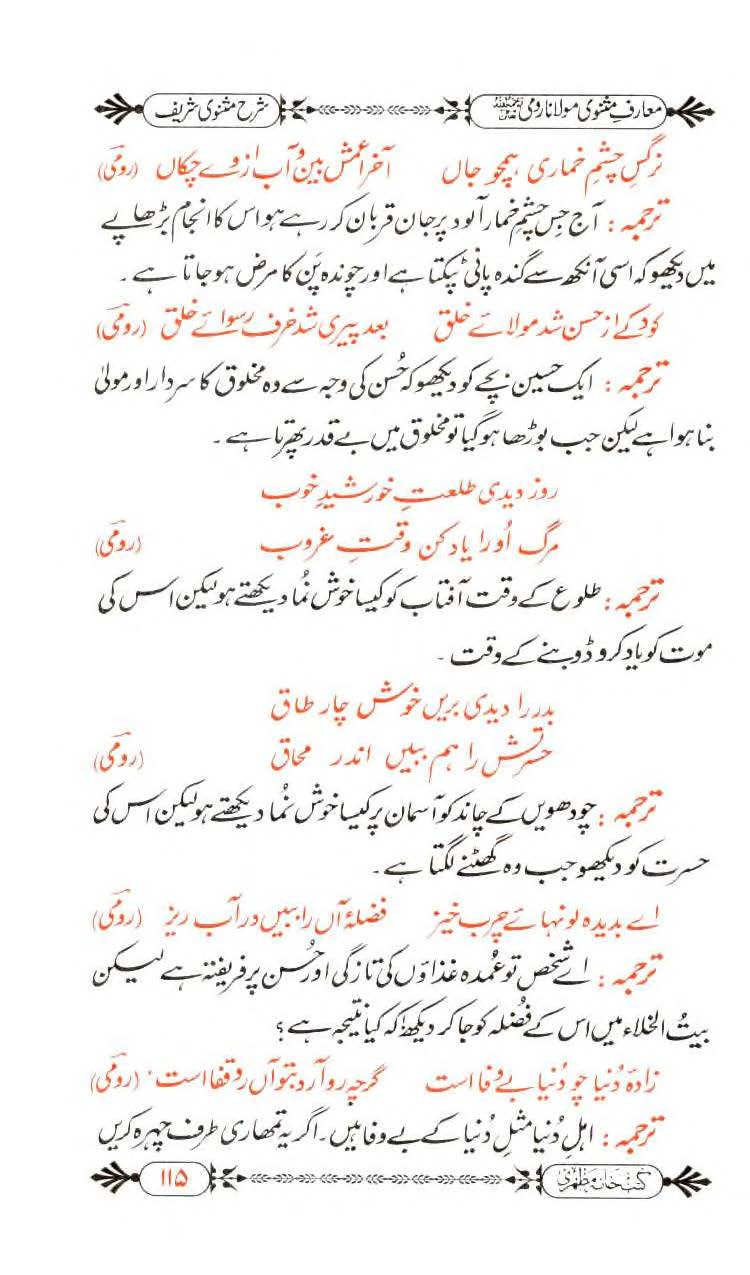 معارفِ مثنوی مولانا رومی رحمۃ اللہ علیہ شرح مثنوی شریف
نرگسِ چشمِ خماری ہمچو جاں آخر اعمش بین و آب از وے چکاں (رومیؔ)
ترجمہ : آج جس چشمِ خمار آلود پر جان قربان کر رہے ہو اس کا انجام بڑھاپے
میں دیکھو کہ اسی آنکھ سے گندہ پانی ٹپکتا ہے اور چوندہ پَن کا مرض ہو جاتا ہے ۔
کودکے از حسن شد مولائے خلق بعد پیری شد خرف رسوائے خلق (رومیؔ)
ترجمہ : ایک حسین بچے کو دیکھو کہ حُسن کی وجہ سے وہ مخلوق کا سردار اور مولیٰ
بنا ہوا ہے لیکن جب بوڑھا ہو گیا تو مخلوق میں بے قدر پھرتا ہے ۔
روز دیدی طلعتِ خورشیدِ خوب
مرگ اُو را یاد کن وقتِ غروب (رومیؔ)
ترجمہ : طلوع کے وقت آفتاب کو کیسا خوش نُما دیکھتے ہو لیکن اس کی
موت کو یاد کرو ڈوبنے کے وقت ۔
بدر را دیدی بریں خوش چار طاق
حسرتش را ہم ببیں اندر محاق (رومیؔ)
ترجمہ : چودھویں کے چاند کو آسمان پر کیسا خوش نُما دیکھتے ہو لیکن اس کی
حسرت کو دیکھو جب وہ گھٹنے لگتا ہے ۔
اے بدیدہ لونہائے چرب خیز فضلۂ آں را ببیں در آب ریز (رومیؔ)
ترجمہ : اے شخص تو عُمدہ غذاؤں کی تازگی اور حُسن پر فریفتہ ہے لیکن
بیتُ الخلاء میں اس کے فُضلہ کو جا کر دیکھ کہ کیا نتیجہ ہے ؟
زادۂ دُنیا چو دُنیا بے وفا است گرچہ رو آرد بتو آں رو قفا است ۰ (رومیؔ)
ترجمہ : اہلِ دُنیا مثلِ دُنیا کے بے وفا ہیں ۔ اگر یہ تمھاری طرف چہرہ کریں
کتب خانہ مظہری ۱۱۵